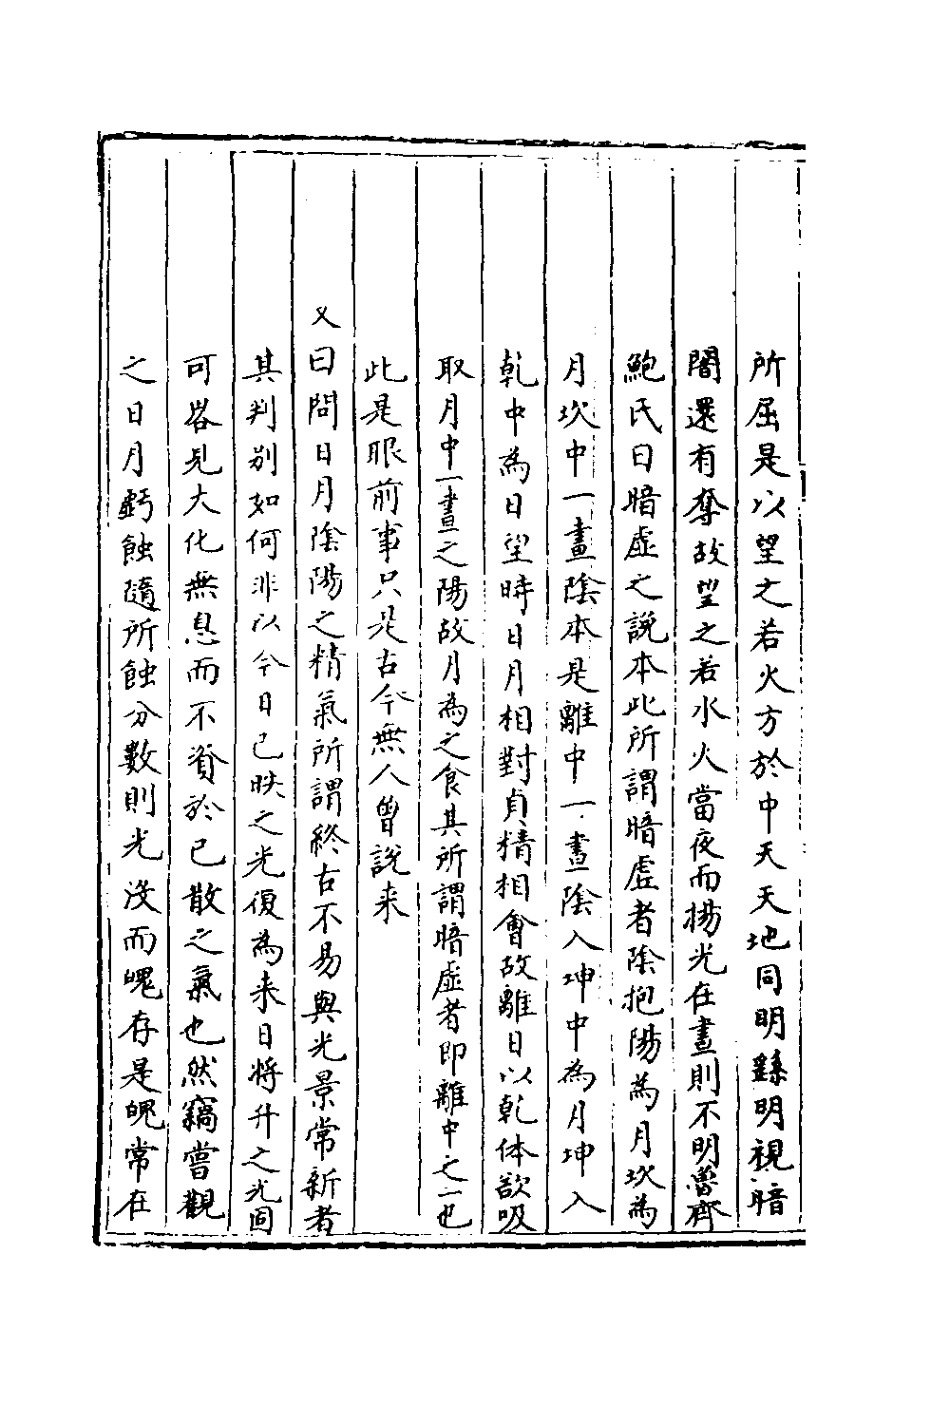 所屈是以望之若火方於中天天地同明繇明視暗
闇還有奪故望之若水火當夜而揚光在晝則不明魯齊
鮑氏曰暗虛之說本此所謂暗虛者陰抱陽為月坎為
月坎中一畫陰本是離中一畫陰入坤中為月坤入
乾中為日望時日月相對貞精相會故離日以乾体欲吸
取月中一畫之陽故月為之食其所謂暗虛者即離中之一也
此是眼前事只是古今無人曾說来
又曰問日月陰陽之精氣所謂終古不易與光景常新者
其判别如何非以今日已昳之光復為来日將升之光固
可畧見大化無息而不資於已散之氣也然竊嘗觀
之日月虧蝕隨所蝕分數則光沒而魄存是魄常在